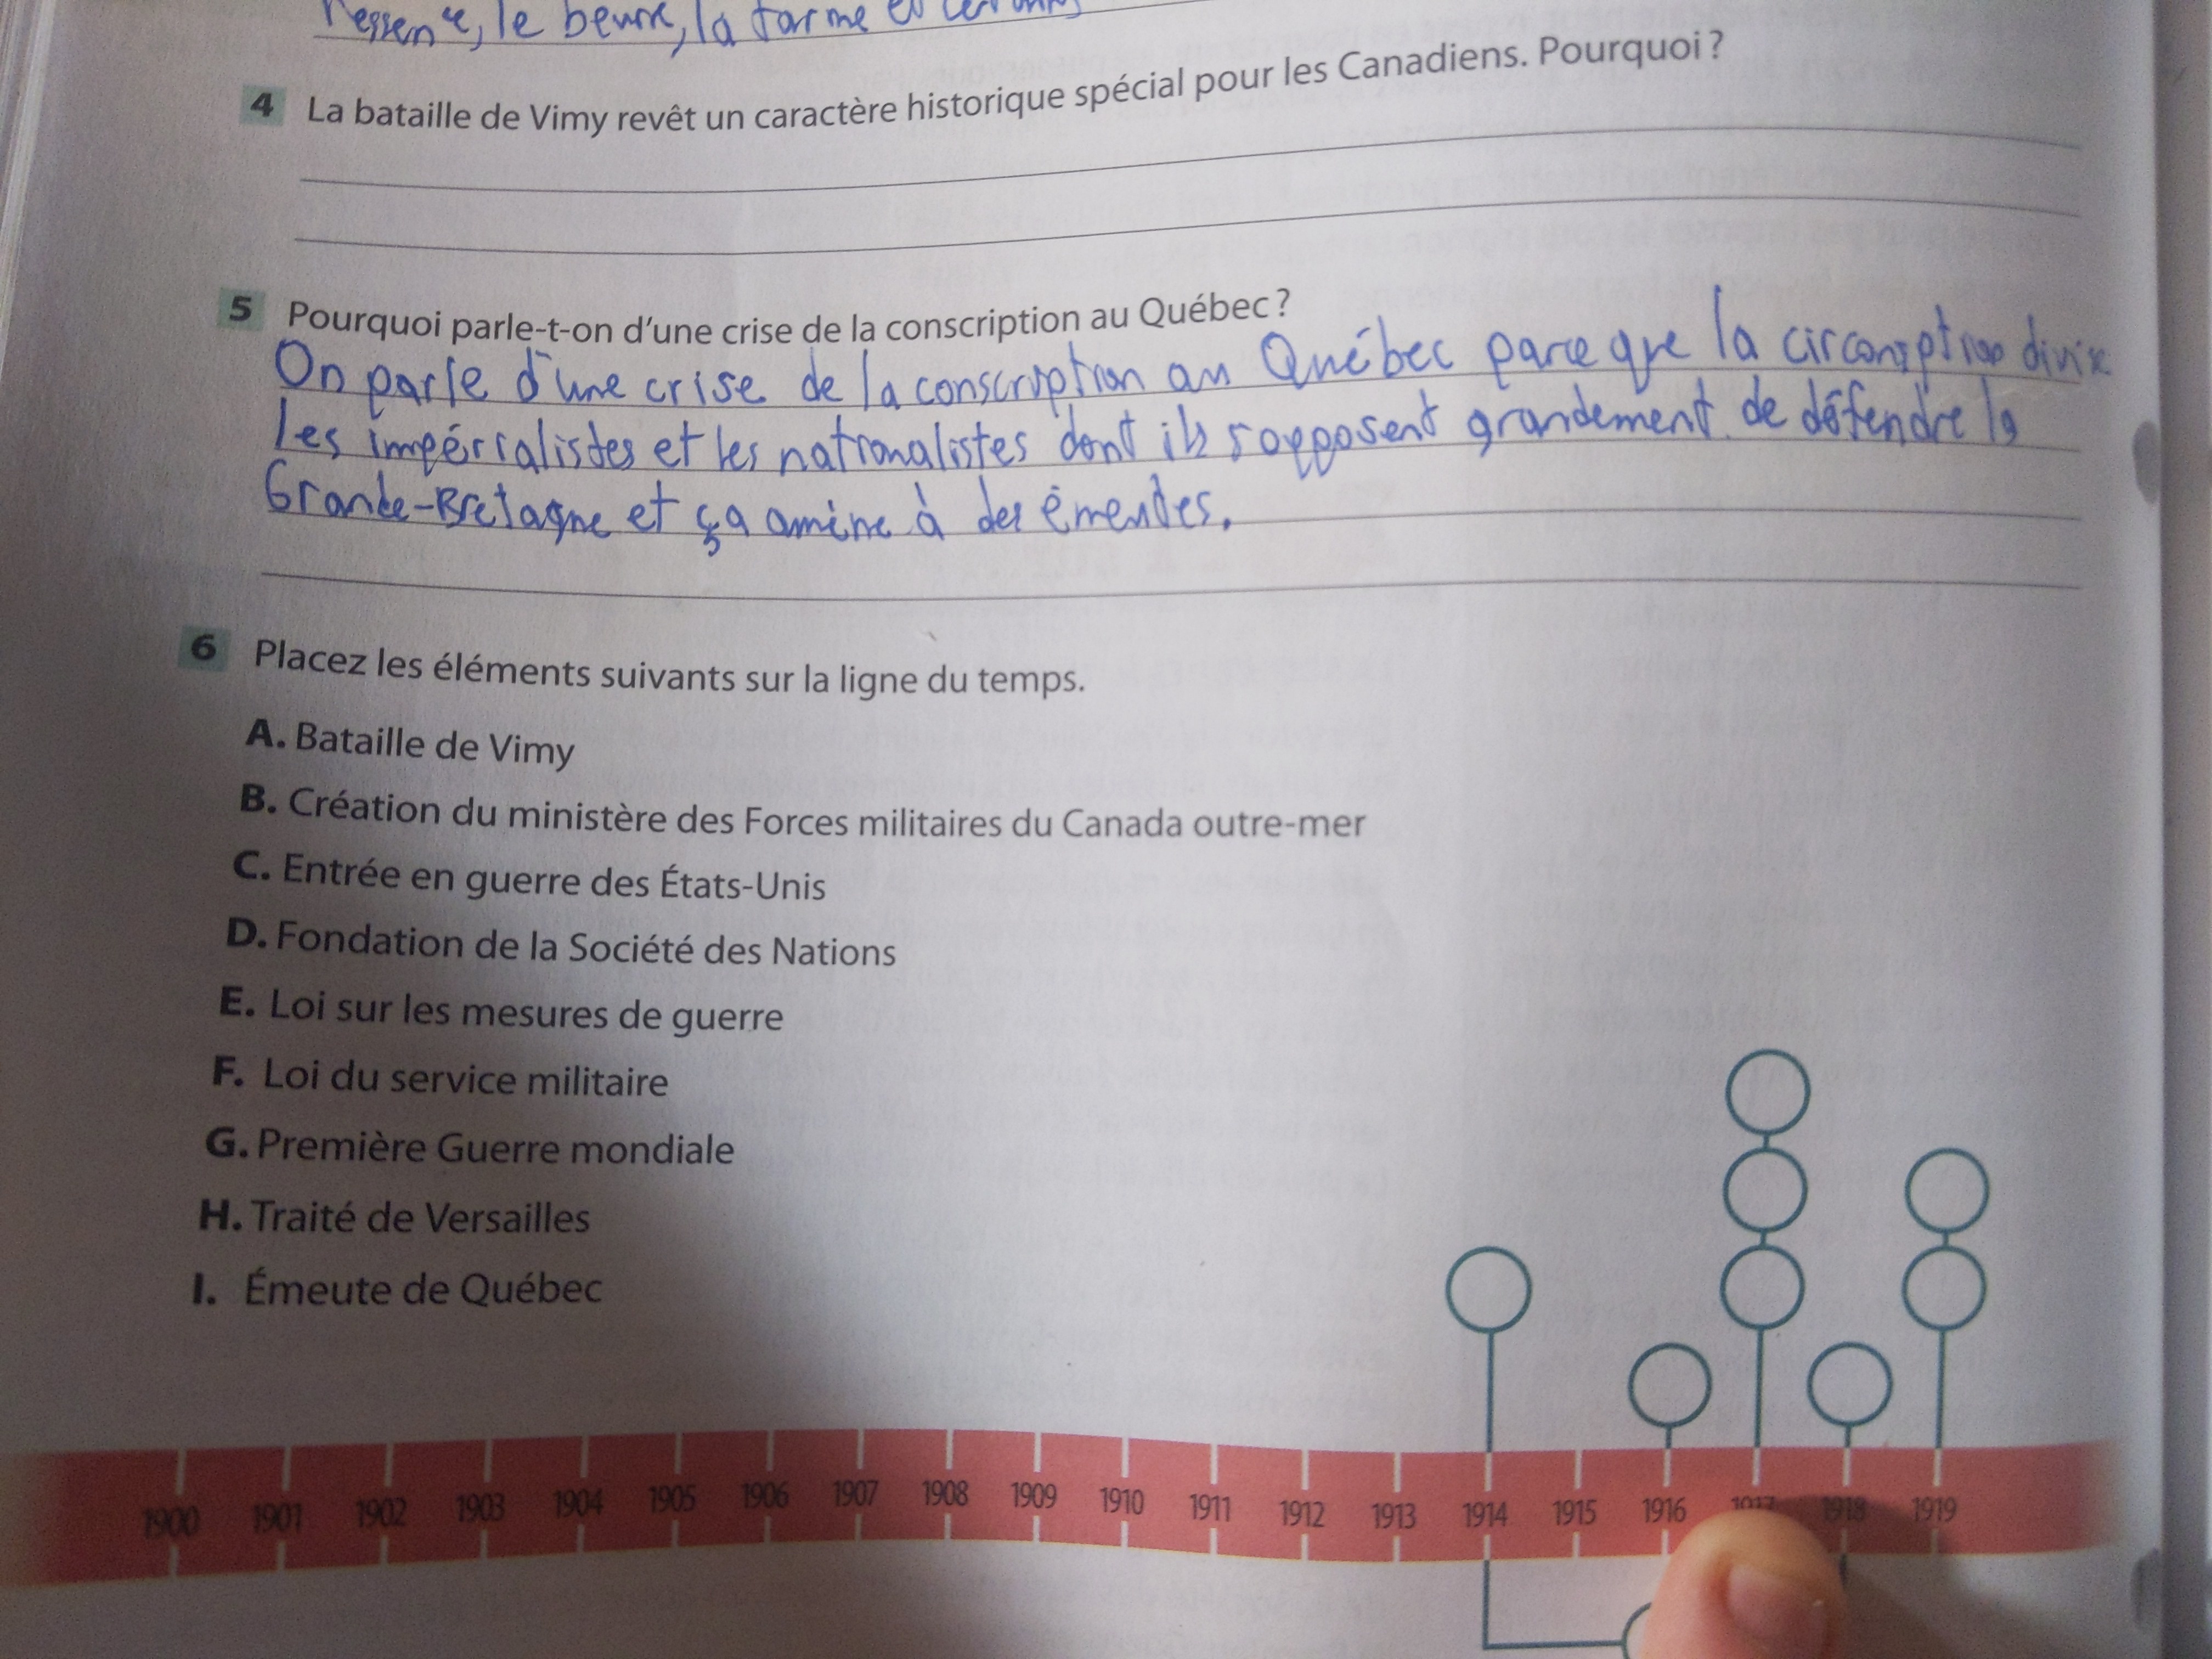 l'essence, le beurre, la farine et
4 La bataille de Vimy revêt un caractère historique spécial pour les Canadiens. Pourquoi ?
5 Pourquoi parle-t-on d'une crise de la conscription au Québec ?
On parle d'une crise de la conscription au Québec parce que la circonsption divise
les impérialistes et les nationalistes dont ils s'opposent grandement de défendre la
Grande-Bretagne et ça amène à des émeutes.
6 Placez les éléments suivants sur la ligne du temps.
A. Bataille de Vimy
B. Création du ministère des Forces militaires du Canada outre-mer
C. Entrée en guerre des États-Unis
D. Fondation de la Société des Nations
E. Loi sur les mesures de guerre
F. Loi du service militaire
G. Première Guerre mondiale
H. Traité de Versailles
I. Émeute de Québec
1900 1901 1902 1903 1904 1905 1906 1907 1908 1909 1910 1911 1912 1913 1914 1915 1916 1917 1918 1919